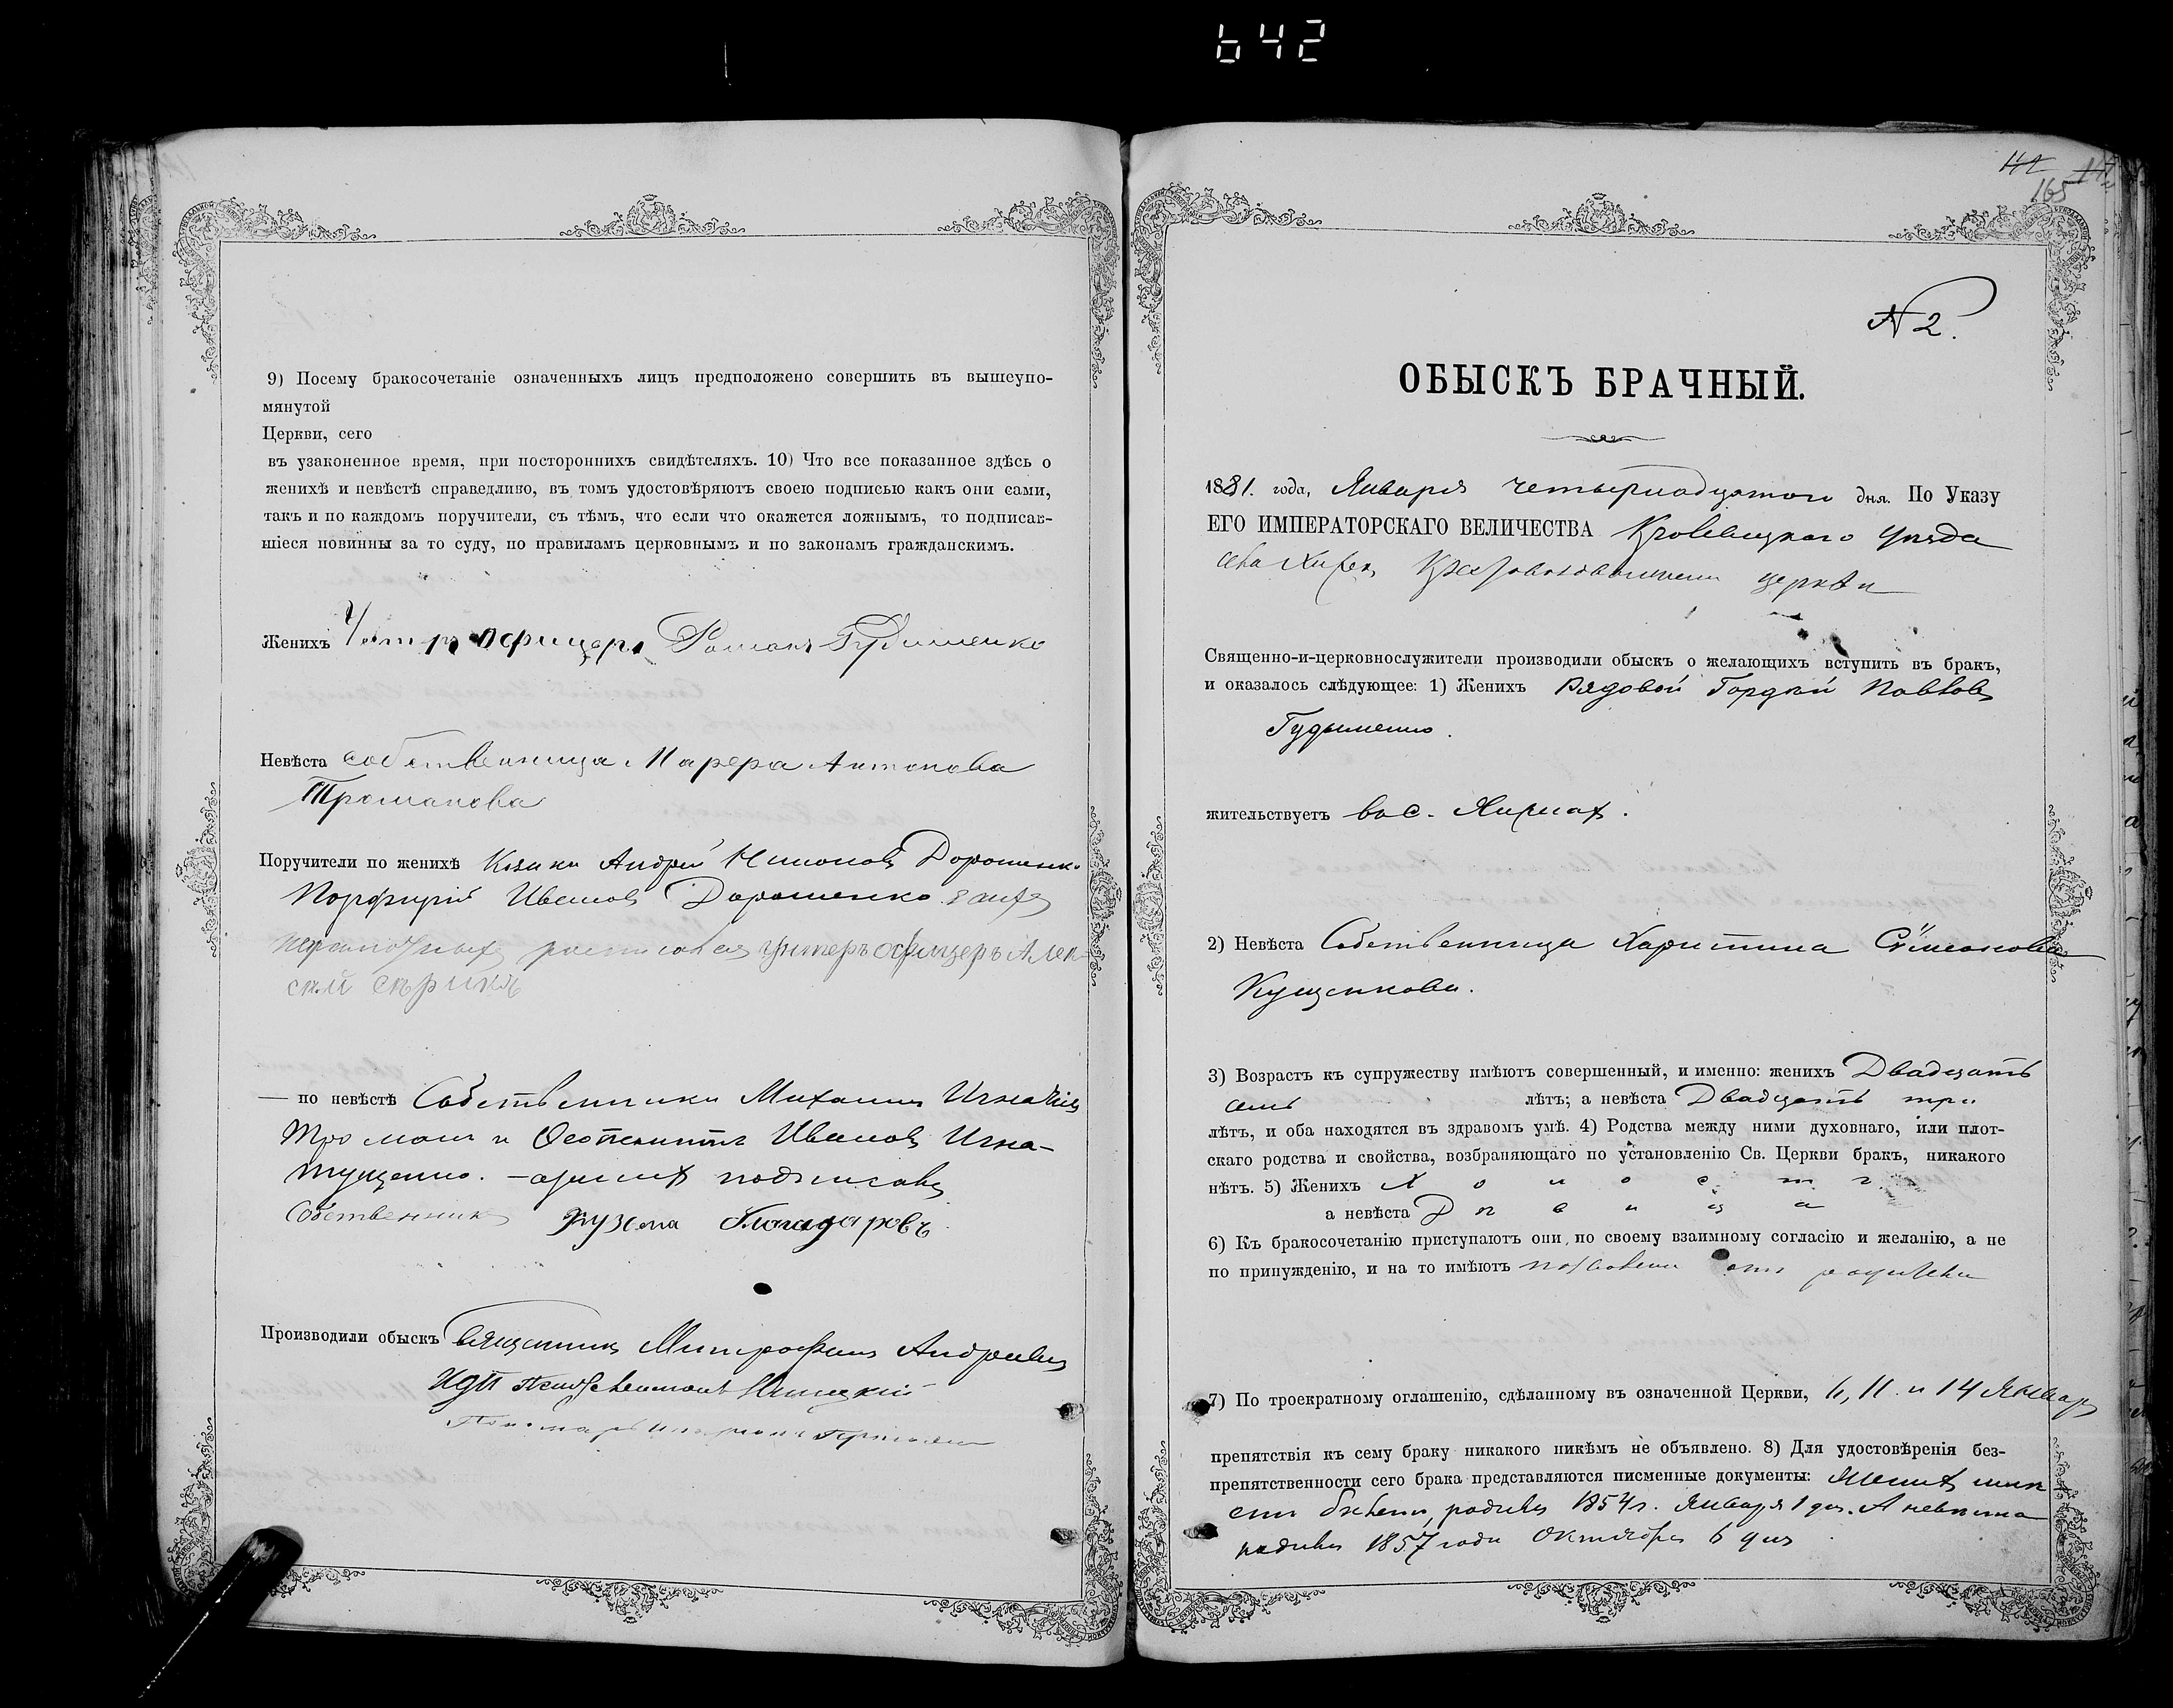 642
9) Посему бракосочетаніе означенныхъ лицъ предположено совершить въ вышеупо-
мянутой
Церкви, сего
въ узаконенное время, при постороннихъ свидѣтеляхъ. 10) Что все показанное здѣсь о
женихѣ и невѣстѣ справедливо, въ томъ удостовѣряютъ своею подписью какъ они сами,
такъ и по каждомъ поручители, съ тѣмъ, что если что окажется ложнымъ, то подписав-
шіеся повинны за то суду, по правиламъ церковнымъ и по законамъ гражданскимъ.
Женихъ Унтеръ офицеръ Романъ Гудименко
Невѣста собственница Марфа Антонова
Троманова
Поручители по женихѣ Козаки Андрей Дорошенко
Порфирій Ивановъ Дорошенко
неграмотныхъ росписался унтеръ офицеръ Алек-
сѣй
— по невѣстѣ Собственники Михаилъ Игнатіевъ
Троманъ и Ивановъ Игна-
тущенко. подписавъ
Собственникъ Кузема
Производили обыскъ Священникъ Митрофанъ Андреевъ
ИДП
Пономарь
142
165
№ 2.
ОБЫСКЪ БРАЧНЫЙ.
1881. года, Января четырнадцатого дня. По Указу
ЕГО ИМПЕРАТОРСКАГО ВЕЛИЧЕСТВА Кролевецкаго уѣзда
села церкви
Священно-и-церковнослужители производили обыскъ о желающихъ вступить въ бракъ,
и оказалось слѣдующее: 1) Женихъ Рядовой Гордѣй Павловъ
Гудименко.
жительствуетъ въ с.
2) Невѣста Собственница Харитина Симонова
Кущенкова.
3) Возрастъ къ супружеству имѣютъ совершенный, и именно: женихъ Двадцать
семь лѣтъ; а невѣста Двадцать три
лѣтъ, и оба находятся въ здравомъ умѣ. 4) Родства между ними духовнаго, или плот-
скаго родства и свойства, возбраняющаго по установленію Св. Церкви бракъ, никакого
нѣтъ. 5) Женихъ Холостъ
а невѣста Дѣвица
6) Къ бракосочетанію приступаютъ они, по своему взаимному согласію и желанію, а не
по принужденію, и на то имѣютъ
7) По троекратному оглашенію, сдѣланному въ означенной Церкви, 6, 11. и 14 Января
препятствія къ сему браку никакого никѣмъ не объявлено. 8) Для удостовѣренія без-
препятственности сего брака представляются писменные документы: Женихъ
билетъ, родився 1854 г. Января 1 дня. А невѣста
родився 1857 года Октября 6 дня